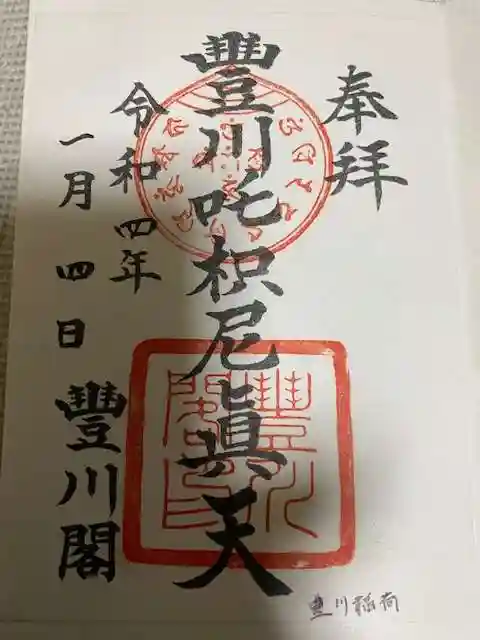 奉拝
豐川吒枳尼眞天
令和四年
一月四日
豐川閣
豐川閣印
豊川稲荷